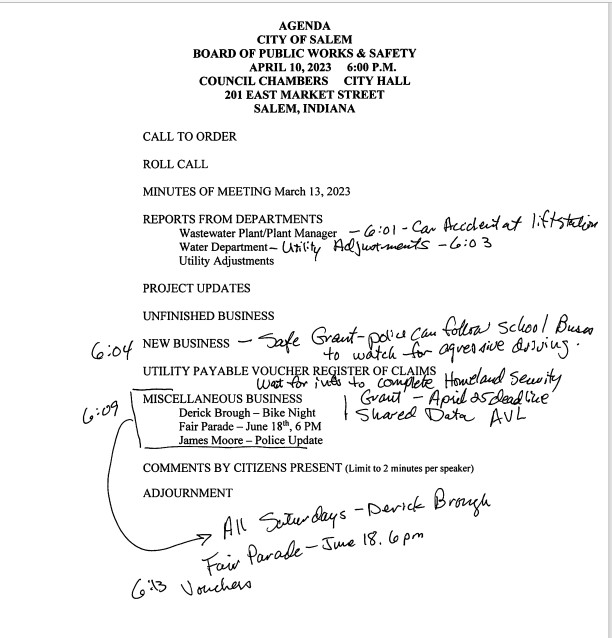 AGENDA
CITY OF SALEM
BOARD OF PUBLIC WORKS & SAFETY
APRIL 10, 2023 6:00 P.M.
COUNCIL CHAMBERS CITY HALL
201 EAST MARKET STREET
SALEM, INDIANA
CALL TO ORDER
ROLL CALL
MINUTES OF MEETING March 13, 2023
REPORTS FROM DEPARTMENTS
Wastewater Plant/Plant Manager - 6:01 - Car Accident at lift station
Water Department - Utility Adjustments - 6:03
Utility Adjustments
PROJECT UPDATES
UNFINISHED BUSINESS
6:04 NEW BUSINESS - Safe Grant - police can follow School Buses
to watch for agressive driving.
UTILITY PAYABLE VOUCHER REGISTER OF CLAIMS
Wait for to complete Homeland Security
6:09 MISCELLANEOUS BUSINESS Grant - April 25 deadline
Derick Brough – Bike Night Shared Data AVL
Fair Parade – June 18th, 6 PM
James Moore – Police Update
COMMENTS BY CITIZENS PRESENT (Limit to 2 minutes per speaker)
ADJOURNMENT
All Saturdays - Derick Brough
Fair Parade - June 18. 6pm
6:13 Vouchers